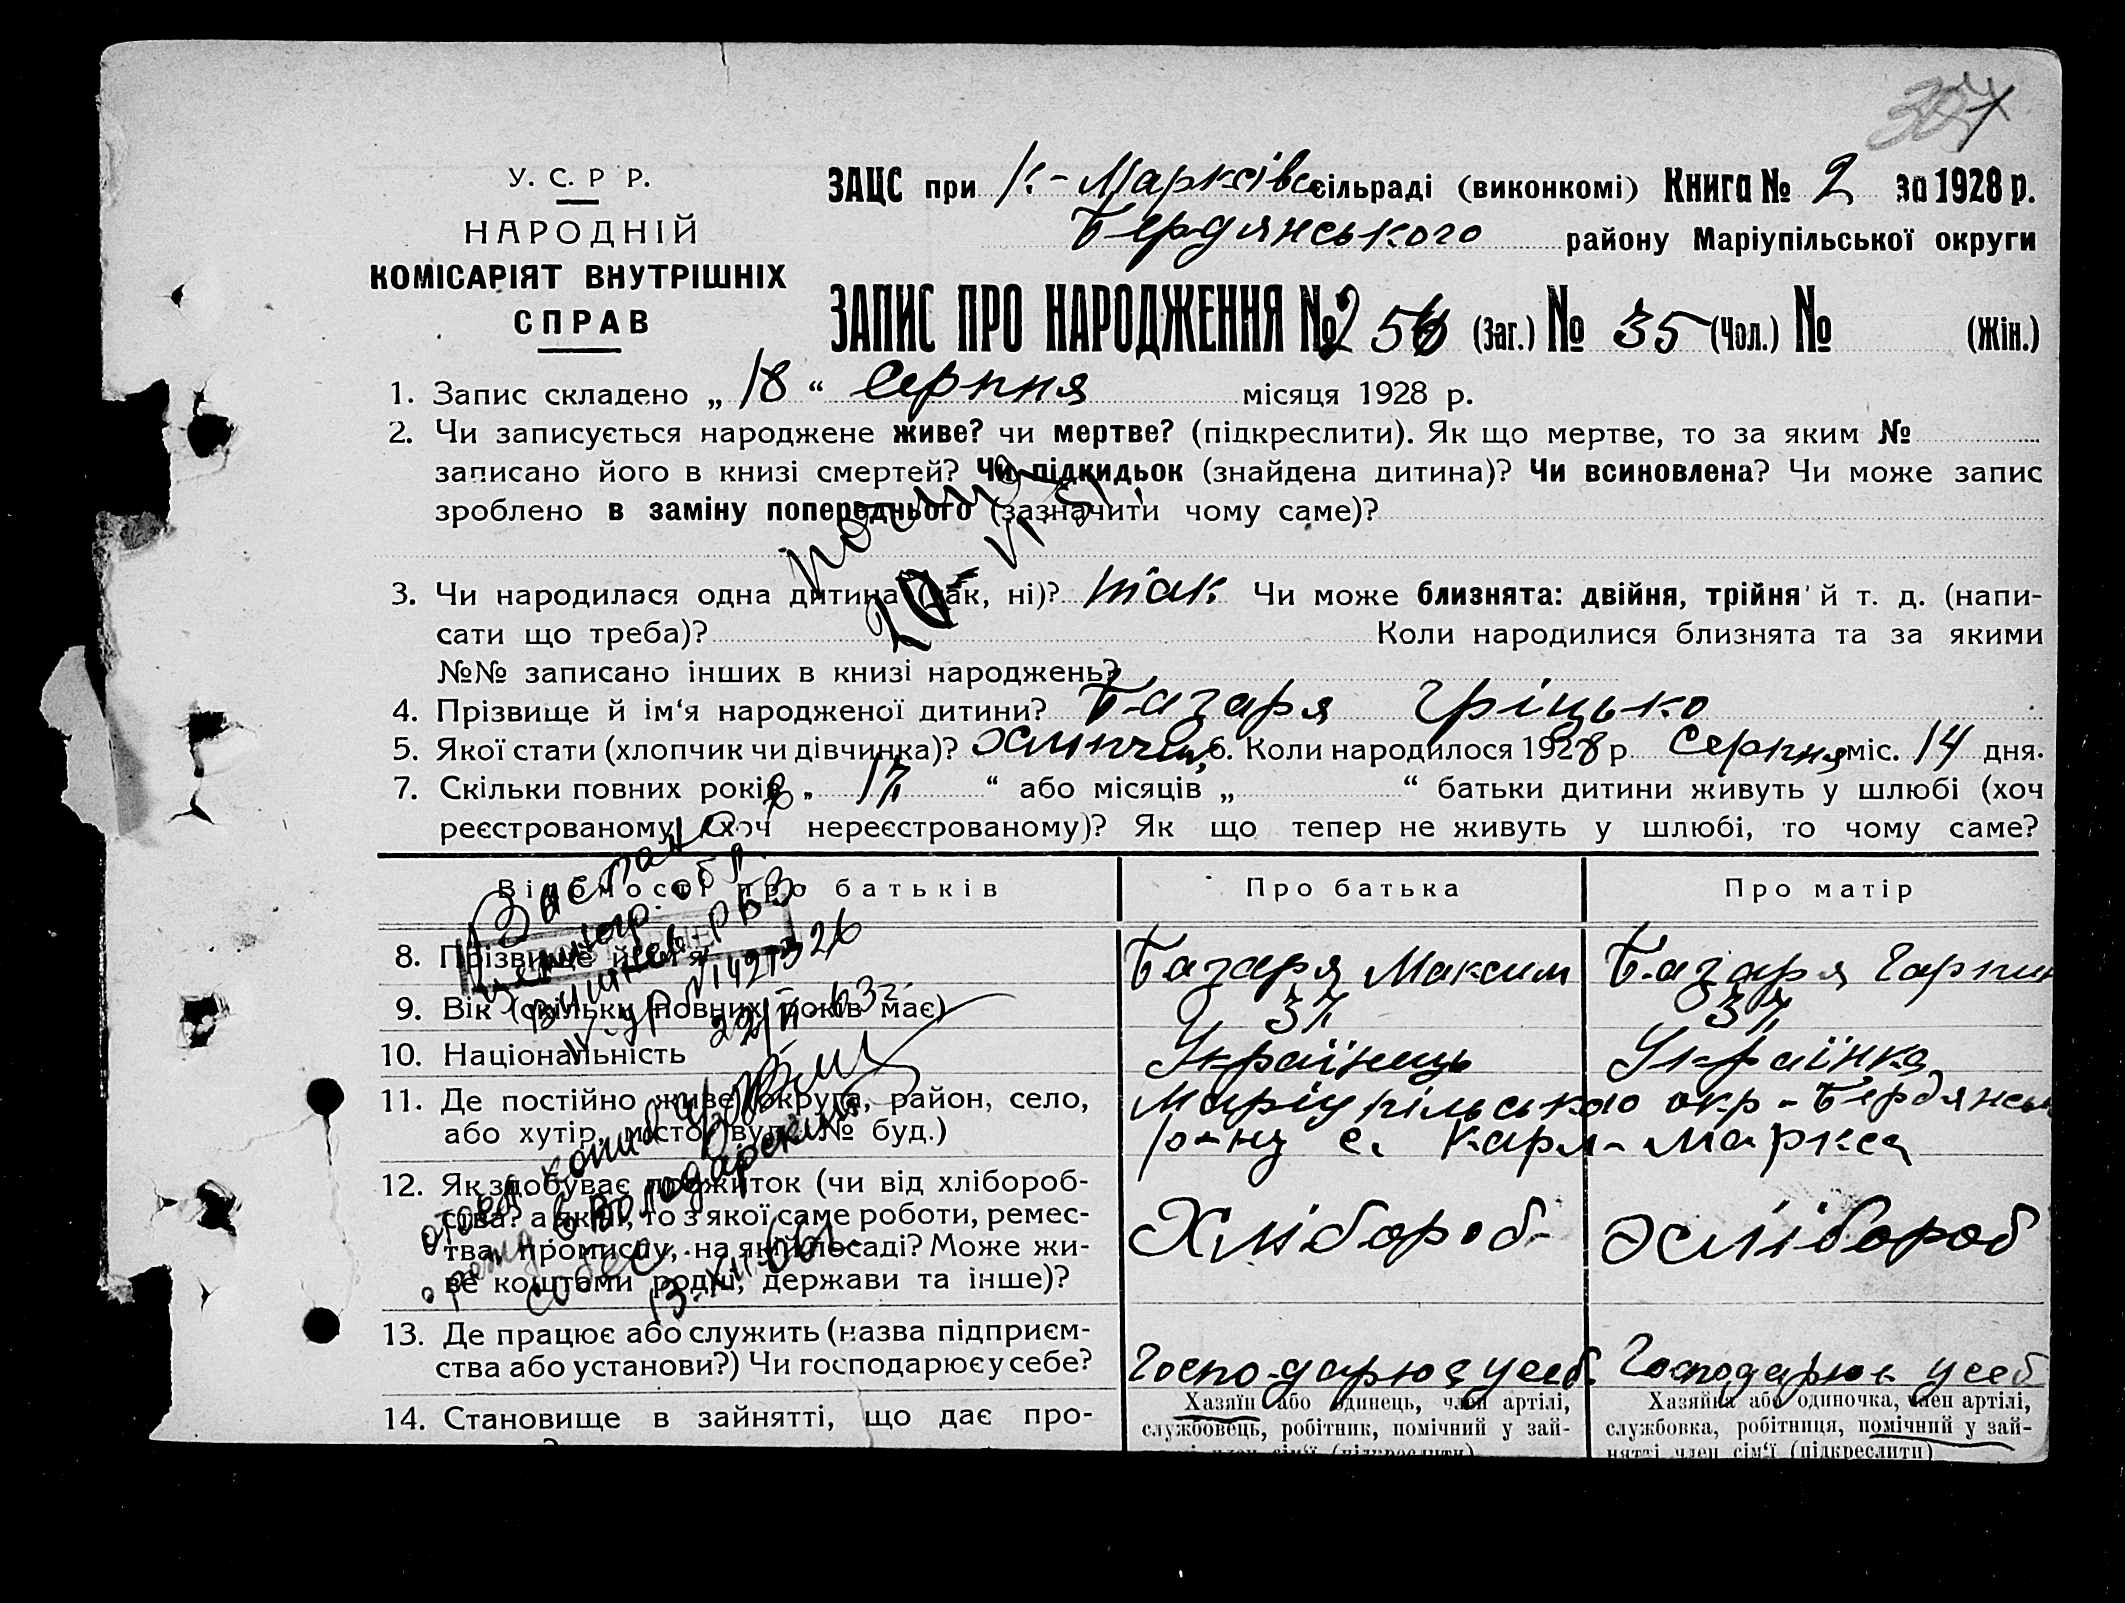 307
У. С. Р Р.
НАРОДНІЙ
КОМІСАРІЯТ ВНУТРІШНІХ
СПРАВ
ЗАЦС при К.-Марксівс сільраді (виконкомі) Книга № 2 за 1928 р.
Бердянського району Маріупільської округи
ЗАПИС ПРО НАРОДЖЕННЯ № (Заг.) № 35 (Чол.) № (Жін.)
1. Запис складено „ 18 “ Серпня місяця 1928 р.
2. Чи записується народжене живе? чи мертве? (підкреслити). Як що мертве, то за яким №
записано його в книзі смертей? Чи підкидьок (знайдена дитина)? Чи всиновлена? Чи може запис
зроблено в заміну попереднього (зазначити чому саме)?
3. Чи народилася одна дитина (так, ні)? так. Чи може близнята: двійня, трійня й т. д. (напи-
сати що треба)? Коли народилися близнята та за якими
№№ записано інших в книзі народжень?
4. Прізвище й ім‘я народженої дитини? Базаря Гріцько
5. Якої стати (хлопчик чи дівчинка)? хлопчик 6. Коли народилося 1928 р Серпня міс. 14 дня.
7. Скільки повних років „ 17 “ або місяців „ “ батьки дитини живуть у шлюбі (хоч
реєстрованому, хоч нереєстрованому)? Як що тепер не живуть у шлюбі, то чому саме?
Відомості про батьків Про батька Про матір
8. Прізвище й ім‘я Базаря Максим Базаря Гарпин
9. Вік (скільки повних років має) 37 37
10. Національність Українець Українка
11. Де постійно живе (округа, район, село, Маріупільського окр - Бердянськ
або хутір, місто, вул., № буд.) р-ну с. Карл-Маркса
12. Як здобуває прожиток (чи від хлібороб-
ства? а як ні, то з якої саме роботи, ремес- Хлібороб- хлібороб
тва, промислу, на якій посаді? Може жи-
ве коштами родні, держави та інше)?
13. Де працює або служить (назва підприєм-
ства або установи?) Чи господарює у себе? Господарює у себ. Господарює у себ
14. Становище в зайнятті, що дає про-
Хазяїн або одинець, член артілі,
службовець, робітник, помічний у зай-
Хазяйка або одиночка, член артілі,
службовка, робітниця, помічний у зай-
нятті член сім‘ї (підкреслити)